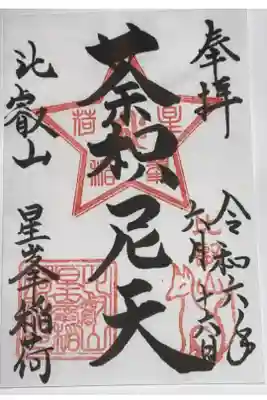 奉拝
令和六年
六月十六日
荼枳尼天
比叡山
星峯稲荷